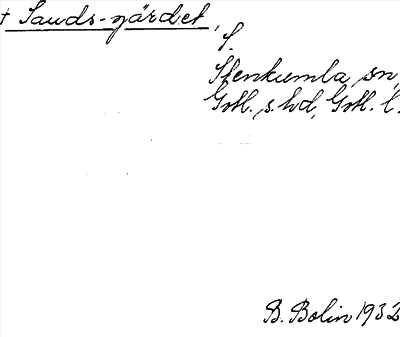 † Sands-gärdet, f.
Stenkumla sn,
Gotl. s. hd, Gotl. l.
B. Bolin 1932